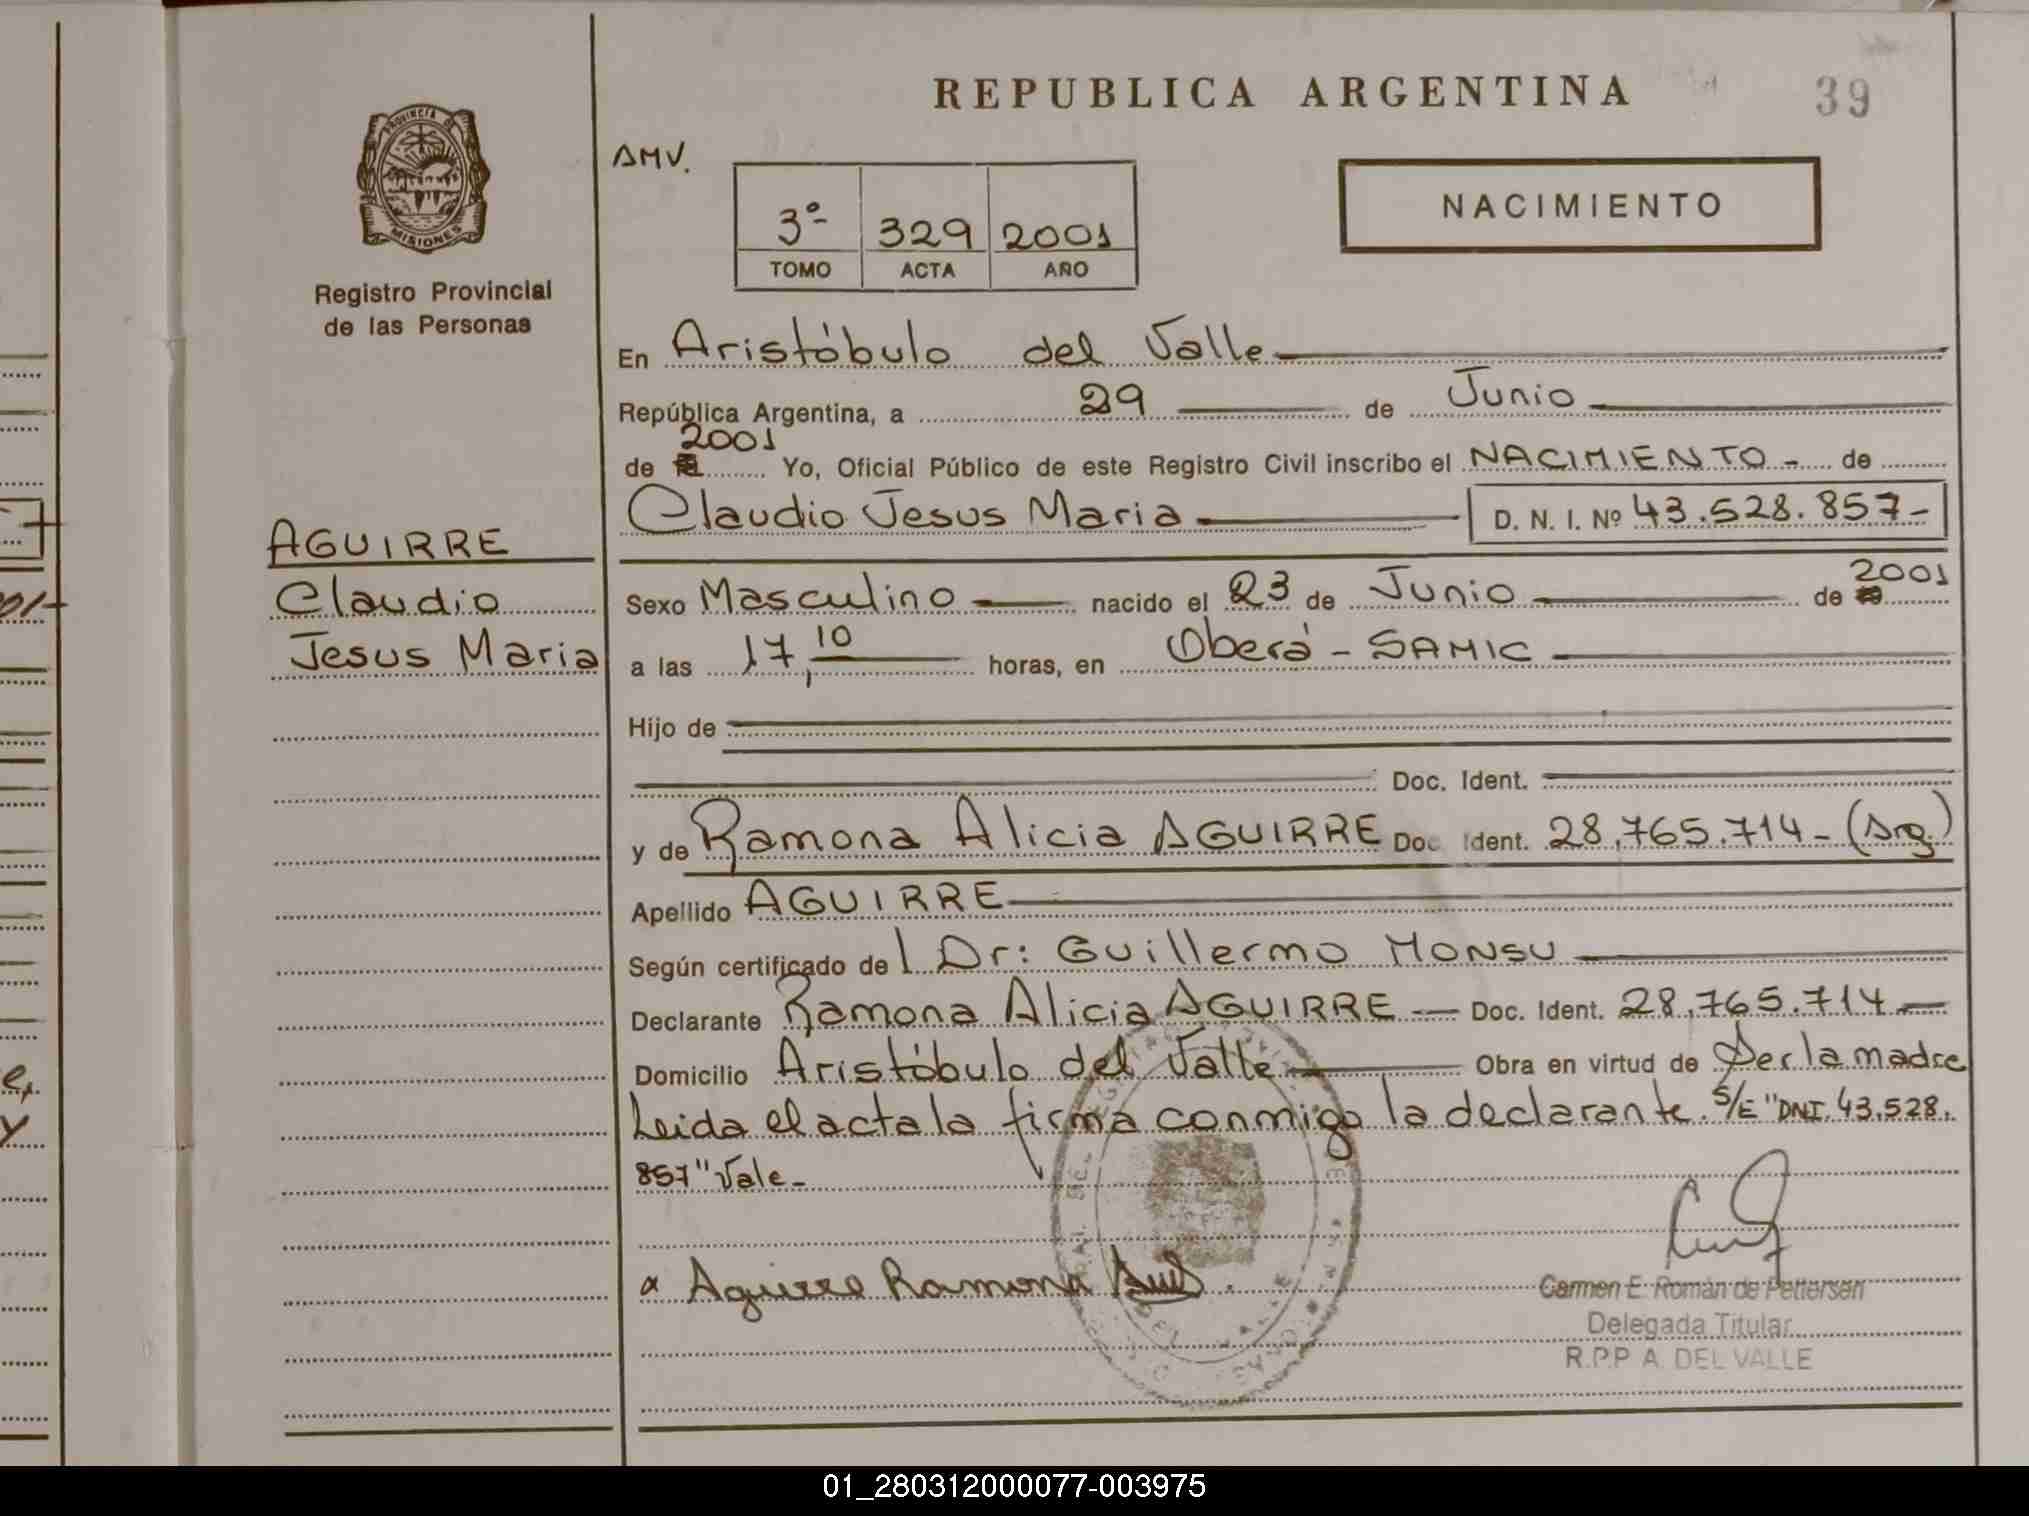 REPUBLICA ARGENTINA
39
PROVINCIA DE
MISIONES
Registro Provincial
de las Personas
AMV.
3º 329 2001
TOMO ACTA AÑO
NACIMIENTO
En Aristóbulo del Valle
República Argentina, a 29 de Junio
2001
de Yo, Oficial Público de este Registro Civil inscribo el NACIMIENTO - de
Claudio Jesus Maria D. N. I. Nº 43.528.857-
AGUIRRE
Claudio
Jesus Maria
Sexo Masculino nacido el 23 de Junio de 2001
a las 17,10 horas, en Oberá - SAMIC
Hijo de
Doc. Ident.
y de Ramona Alicia AGUIRRE Doc. Ident. 28.765.714- (Arg.)
Apellido AGUIRRE
Según certificado del Dr: Guillermo MONSU
Declarante Ramona Alicia AGUIRRE — Doc. Ident. 28.765.714 —
Domicilio Aristóbulo del Valle Obra en virtud de Ser la madre
Leida el acta la firma conmigo la declarante. S/E "DNI. 43.528.
857" Vale-
Aguirre Ramona
Carmen E. Román de Pettersen
Delegada Titular
R.P.P A. DEL VALLE
01_280312000077-003975